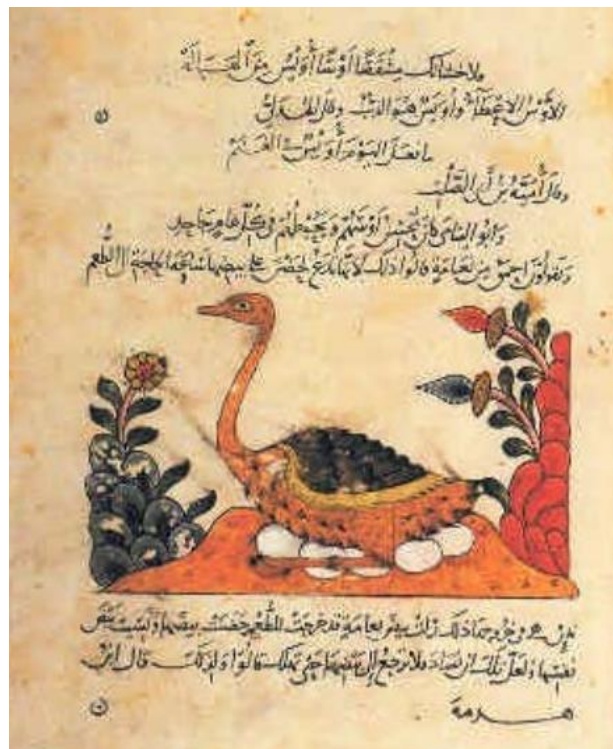 ولاحشانك مشقصا اوسا أويس من الهبالة
الاوس الاعطاء واويس هو الذئب وقال الهذلي
ما فعل اليوم أويس في الغنم
وقال أمية بن أبي الصلت
وابو اليتامى كان يحسن اوسهم ويحوطهم في كل عام جامد
ويقولون احمق من نعامة قالوا ذلك لانها تدع الحضن على بيضها ساعة الحاجة الى الطعم
خروجها ذلك رأت بيض نعامة قد خرجت للطعم حضنت بيضها ونسيت بيض
نفسها ولعل تلك ان تصاد فلا ترجع الى بيضها حتى تهلك قالوا ولذلك قال ابن
هرمة